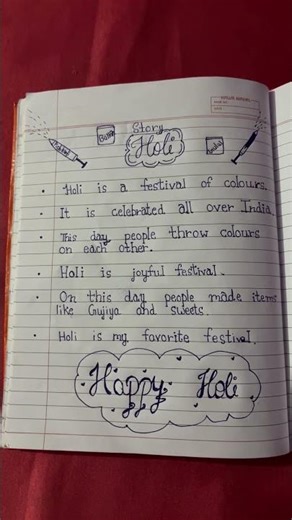 Story
Holi
• Holi is a festival of colours.
• It is celebrated all over India.
• This day people throw colours
on each other.
• Holi is joyful festival.
• On this day people made items
like Gujiya and sweets.
• Holi is my favorite festival.
Happy Holi